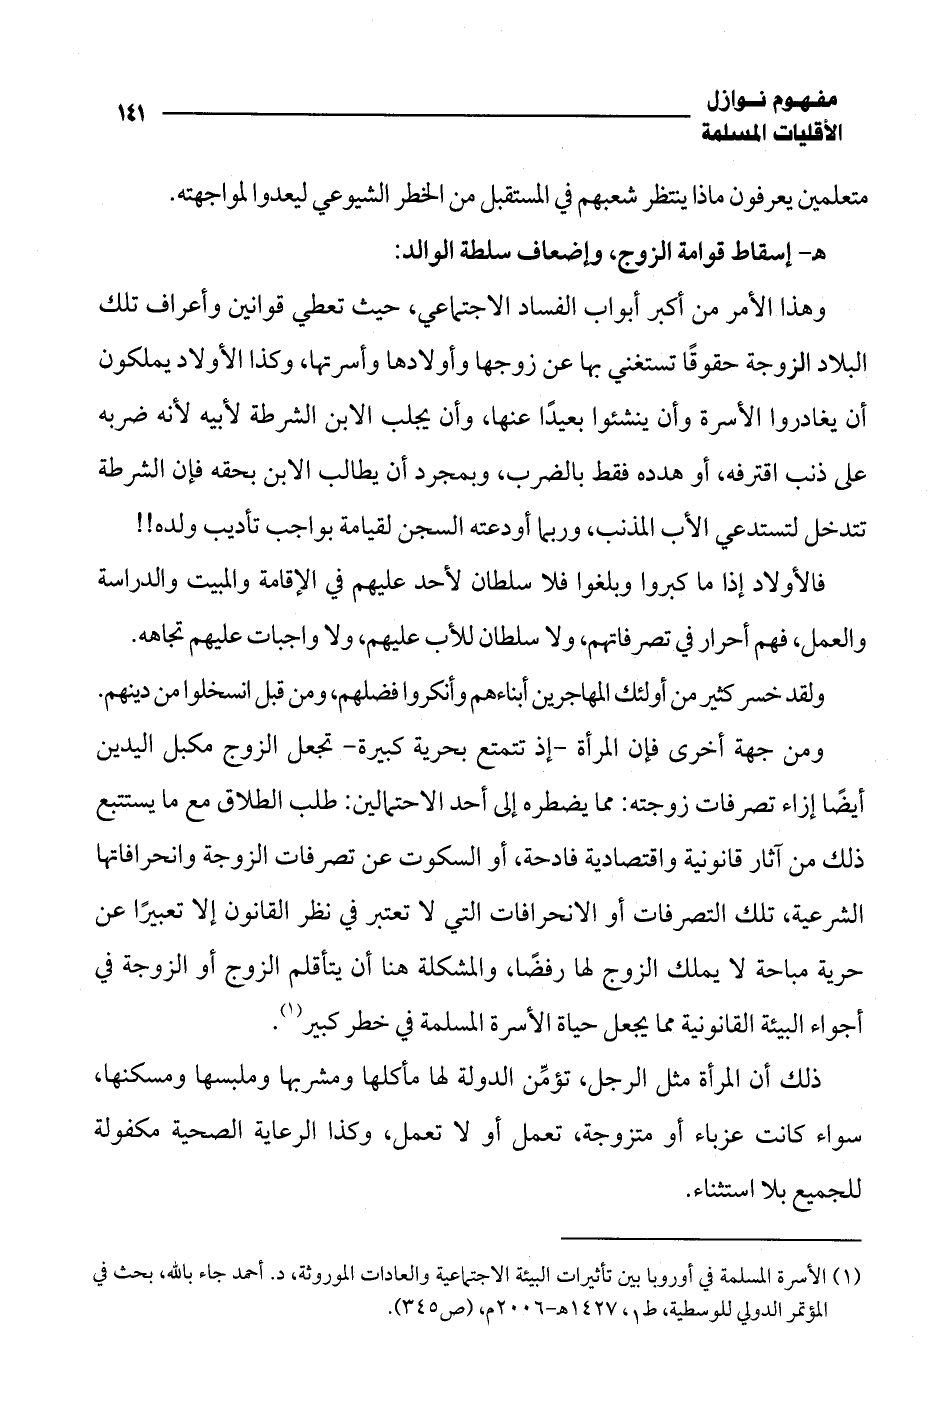 مفهوم نوازل
الأقليات المسلمة
١٤١
متعلمين يعرفون ماذا ينتظر شعبهم في المستقبل من الخطر الشيوعي ليعدوا لمواجهته.
هـ- إسقاط قوامة الزوج، وإضعاف سلطة الوالد:
وهذا الأمر من أكبر أبواب الفساد الاجتماعي، حيث تعطي قوانين وأعراف تلك
البلاد الزوجة حقوقًا تستغني بها عن زوجها وأولادها وأسرتها، وكذا الأولاد يملكون
أن يغادروا الأسرة وأن ينشئوا بعيدًا عنها، وأن يجلب الابن الشرطة لأبيه لأنه ضربه
على ذنب اقترفه، أو هدده فقط بالضرب، وبمجرد أن يطالب الابن بحقه فإن الشرطة
تتدخل لتستدعي الأب المذنب، وربما أودعته السجن لقيامة بواجب تأديب ولده!!
فالأولاد إذا ما كبروا وبلغوا فلا سلطان لأحد عليهم في الإقامة والمبيت والدراسة
والعمل، فهم أحرار في تصرفاتهم، ولا سلطان للأب عليهم، ولا واجبات عليهم تجاهه.
ولقد خسر كثير من أولئك المهاجرين أبناءهم وأنكروا فضلهم، ومن قبل انسخلوا من دينهم.
ومن جهة أخرى فإن المرأة -إذ تتمتع بحرية كبيرة- تجعل الزوج مكبل اليدين
أيضًا إزاء تصرفات زوجته: مما يضطره إلى أحد الاحتمالين: طلب الطلاق مع ما يستتبع
ذلك من آثار قانونية واقتصادية فادحة، أو السكوت عن تصرفات الزوجة وانحرافاتها
الشرعية، تلك التصرفات أو الانحرافات التي لا تعتبر في نظر القانون إلا تعبيرًا عن
حرية مباحة لا يملك الزوج لها رفضًا، والمشكلة هنا أن يتأقلم الزوج أو الزوجة في
أجواء البيئة القانونية مما يجعل حياة الأسرة المسلمة في خطر كبير(١).
ذلك أن المرأة مثل الرجل، تؤمِّن الدولة لها مأكلها ومشربها وملبسها ومسكنها،
سواء كانت عزباء أو متزوجة، تعمل أو لا تعمل، وكذا الرعاية الصحية مكفولة
للجميع بلا استثناء.
(١) الأسرة المسلمة في أوروبا بين تأثيرات البيئة الاجتماعية والعادات الموروثة، د. أحمد جاء بالله، بحث في
المؤتمر الدولي للوسطية، ط١، ١٤٢٧هـ-٢٠٠٦م، (ص٣٤٥).